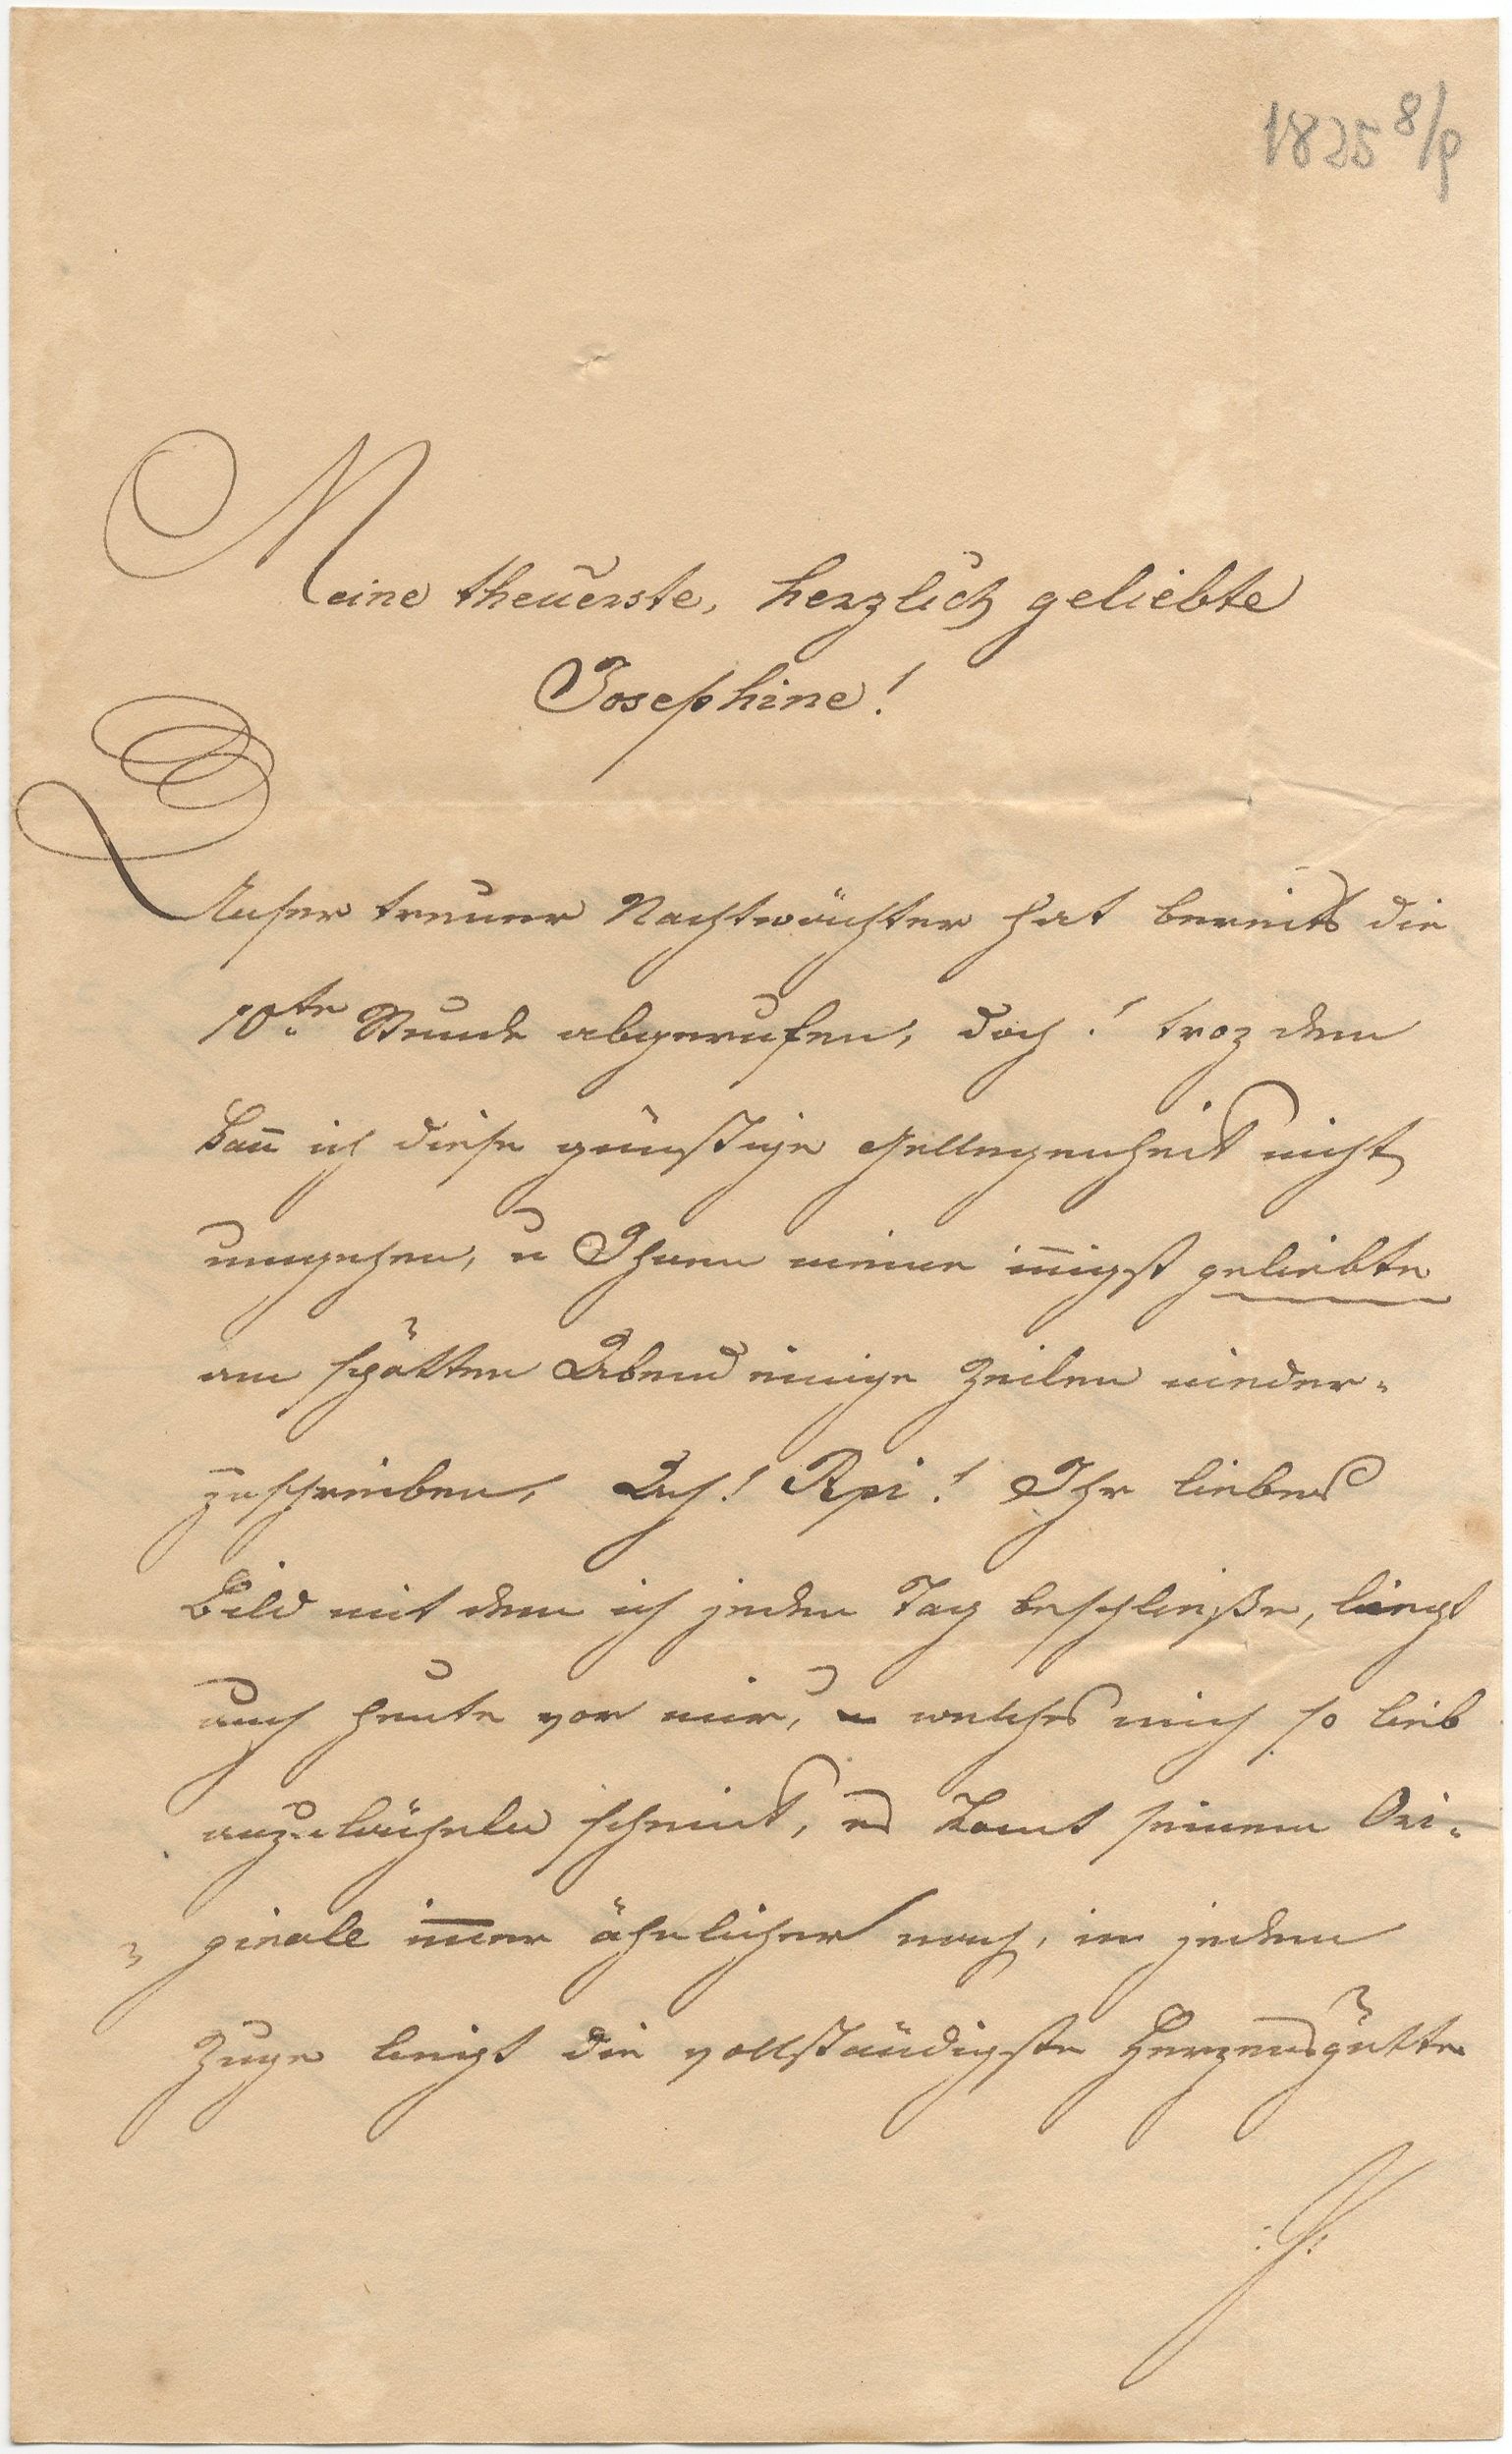 1825 8/9
Meine theuerste, herzlich geliebte
Josephine!
Unser treuer Nachtwächter hat bereits die
10te Stunde abgerufen, doch! troz dem
kan̄ ich diese günstige Gellegenheit nicht
umgehen, u Ihnen meine in̄igst geliebte
am spätten Abend einige Zeilen nieder-
zuschreiben, Ach! Ihr liebes
Bild mit dem ich jeden Tag beschließe, liegt
auch heute vor mir, welches mich so lieb
anzulächeln scheint, es komt seinem Ori-
ginale im̄er ähnlicher nach, in jedem
Zuge liegt die vollständigste Herzensgütte